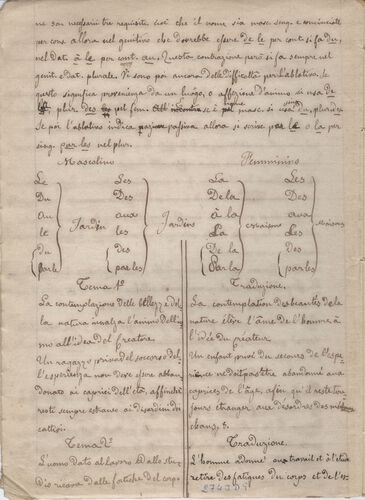 ne son necessari tre requisiti, cioè che il nome sia masc. sing. e cominciante
per cons. allora nel genitivo che dovrebbe essere de le per cont. si fa du,
nel dat. à le per cont. au. Questa contrazione però si fa sempre nel
genit. e dat. plurale. Vi sono poi ancora delle difficoltà per l'ablativo. Se
questo significa provenienza da un luogo, o affezione d'animo si usa
plur. des pel fem. masc. si usa du, plur. des
Se poi l'ablativo indica passiva allora si scrive par le o la per
sing. par les nel plur.
Mascolino Femminino
Le Les La Les
Du Des De la Des
Au aux à la aux
le Jardin les Jardins La maison Les Maisons
du des De la Des
par le par les Par la par les
Tema 1º
La contemplazione delle bellezze del
la natura innalza l'animo dell'uo
mo all'idea del Creatore.
Un ragazzo privo del soccorso del
l'esperienza non deve essere abban
donato ai capricci dell'età, affinché
resti sempre estraneo ai disordini dei
cattivi.
Tema 2º
L'uomo dato al lavoro e allo stu
dio ricava dalle fatiche del corpo
Traduzione.
La contemplation des beautés de la
nature élève l'âme de l'homme à
l'idée du créateur.
Un enfant privé du secours de l'expé
rience ne doit pas être abandonné aux
caprices de l'âge, afin qu'il reste tou
jours étranger aux désordres des mé
chans.
Traduzione.
L'homme adonné au travail et à l'étude
retire des fatigues du corps et de l'es